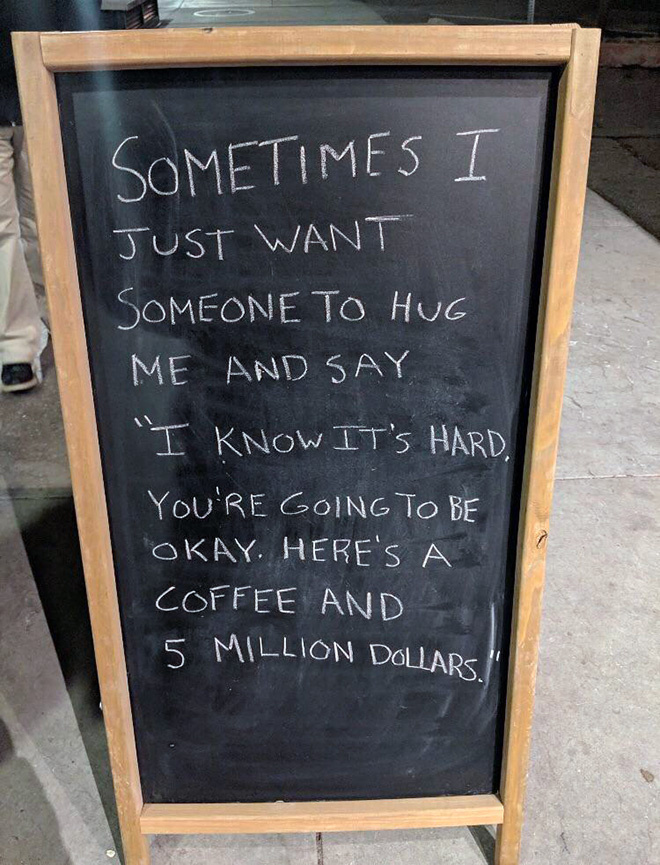 SOMETIMES I
JUST WANT
SOMEONE TO HUG
ME AND SAY
"I KNOW IT'S HARD.
YOU'RE GOING TO BE
OKAY. HERE'S A
COFFEE AND
5 MILLION DOLLARS."